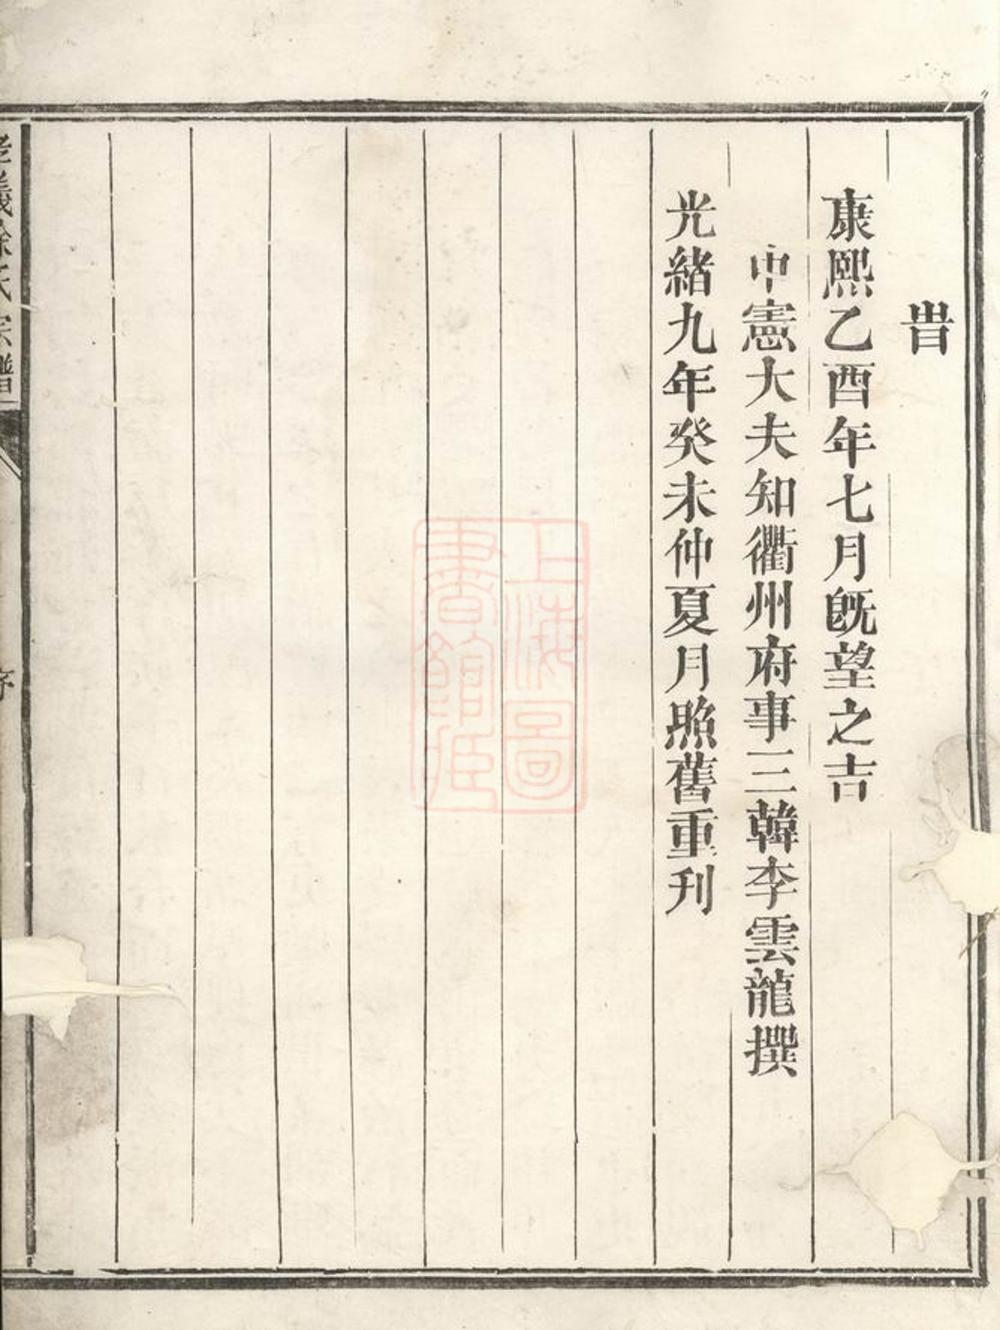 旹
康熙乙酉年七月既望之吉
中憲大夫知衢州府事三韓李雲龍撰
光緒九年癸未仲夏月照舊重刊
上海圖
書館藏
義徐氏宗譜
序